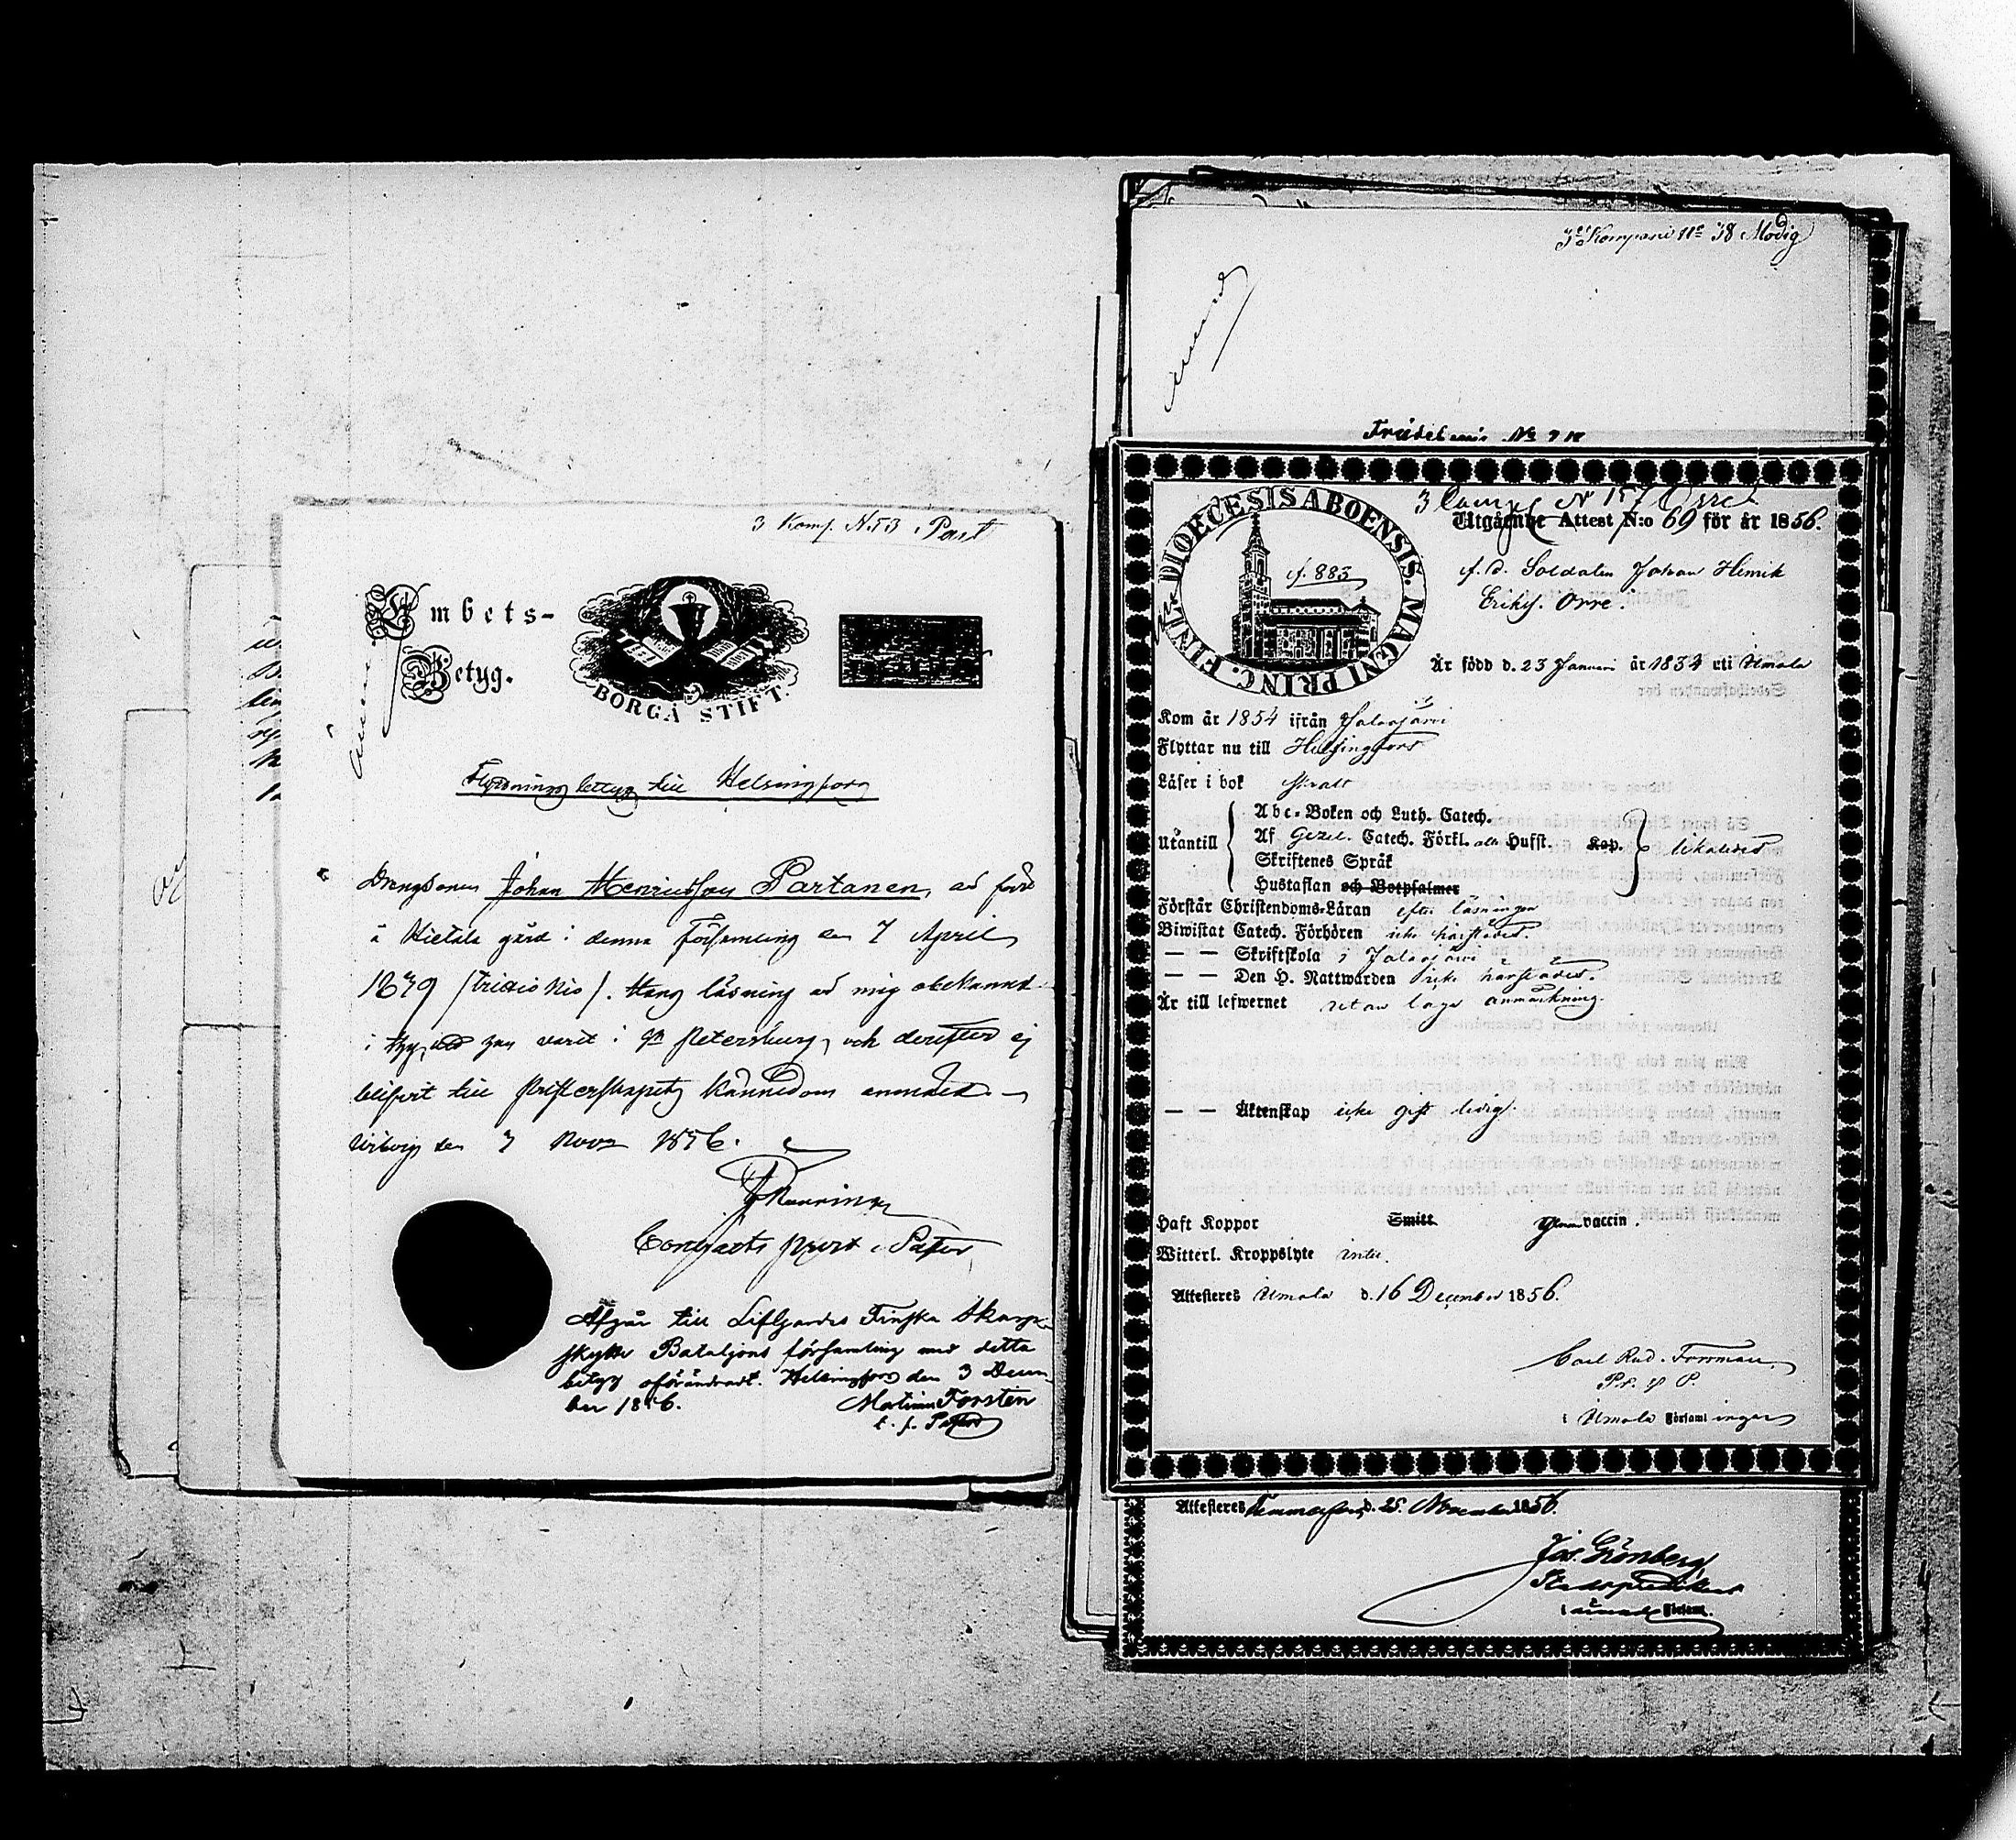 3 Komp. N. 53 Past
Embets-
Betyg.
BORGÅ STIFT.
Flyttnings bettyg till Helsingfors
Drengsonen Johan Henricsson Partanen, är född
å Hietala gård i denna Församling den 7 April
1839 /triatio Nio/. Hans läsning är mig obekannt
i ty, at han varit i St Petersburg, och derefter ej
blifvit till Presterskapets kännedom anmäld.
Wiborg den 7 Nov 1856.
Contracts Prost, Pastor
Afgår till Lifgardes Finska Skarp-
skytte Bataljons församling med detta
betyg oförändradt. Helsingfors den 3 Decem-
ber 1856.
Martin Forsten
t. f. Pastor
3e Kompani No 38 Modig
Frädebevis No
3 Comp. N 157 Orre
DIOECESIS ABOENSIS. MAGNI PRINC. FINL.
f. 883
Utgående Attest N:o 69 för år 1856.
f. d. Soldaten Johan Henrik
Eriks. Orre.
Är född d. 23 Januari år 1834 uti Ilmola
Kom år 1854 ifrån Jalasjärvi
Flyttar nu till Helsingfors
Läser i bok
Utantill
Abc-Boken och Luth. Catech.
Af Gezel. Catech. Förkl. alla Hufst. Kap.
Skriftenes Språk
Hustaflan och Botpsalmer
likaledes
Förstår Christendoms-Läran efter läsningen
Biwistat Catech. Förhören icke härstädes.
— — Skriftskola i Jalasjärvi
— — Den H. Nattwarden icke härstädes.
Är till lefwernet utan laga anmärkning.
— — Äktenskap icke gift ledig.
Haft Koppor Smitt vaccin.
Witterl. Kroppslyte intet.
Attesteres Ilmola d. 16 December 1856.
Carl Rud. Forsman,
Pr. o P.
i Ilmola Församlingar
Attesteres d. 25 November 1856.
Jos. Grönberg
Stadspredikant
i Församl.